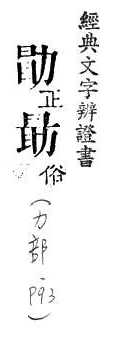 經典文字辨證書
助正
俗
(力部.P93)